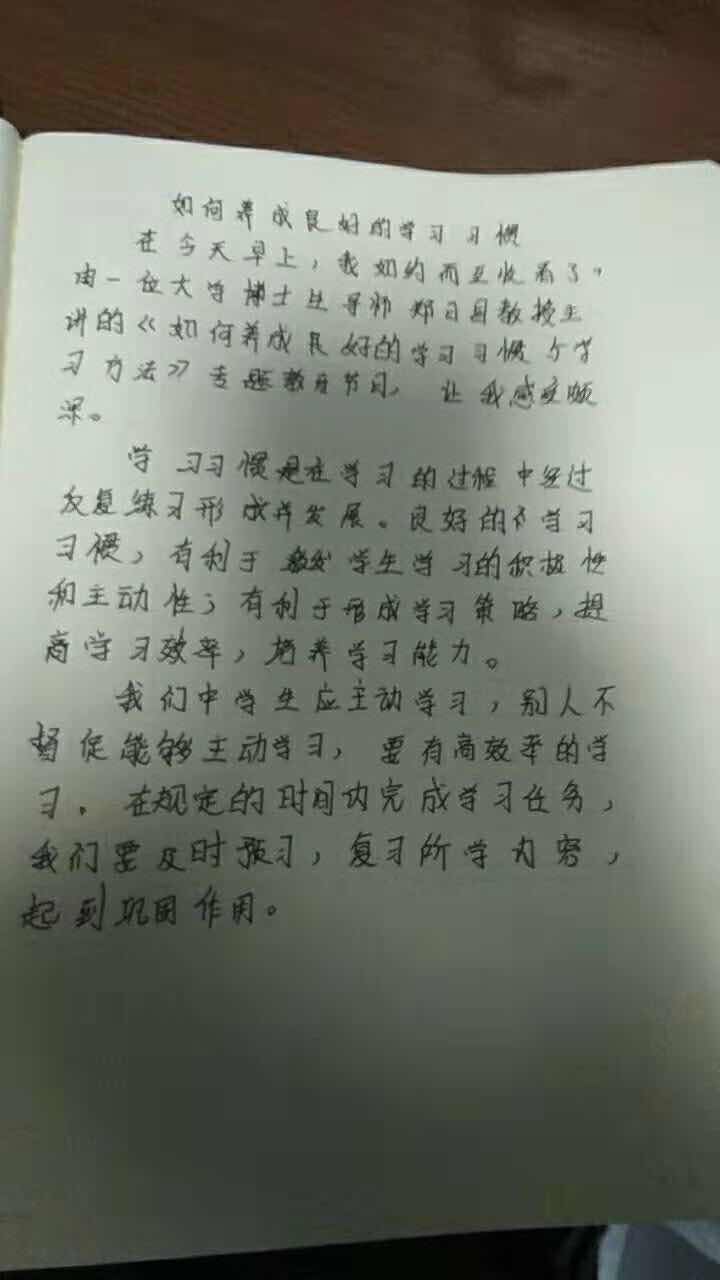 如何养成良好的学习习惯
在今天早上，我如约而至收看了，
由一位大学博士生导师郑日昌教授主
讲的《如何养成良好的学习习惯个学
习方法》专题教育节目，让我感受颇
深。
学习习惯是在学习的过程中经过
反复练习形成并发展。良好的学习
习惯，有利于激发学生学习的积极性
和主动性；有利于形成学习策略，提
高学习效率，培养学习能力。
我们中学生应主动学习，别人不
督促能够主动学习，要有高效率的学
习。在规定的时间内完成学习任务，
我们要及时预习，复习所学内容，
起到巩固作用。